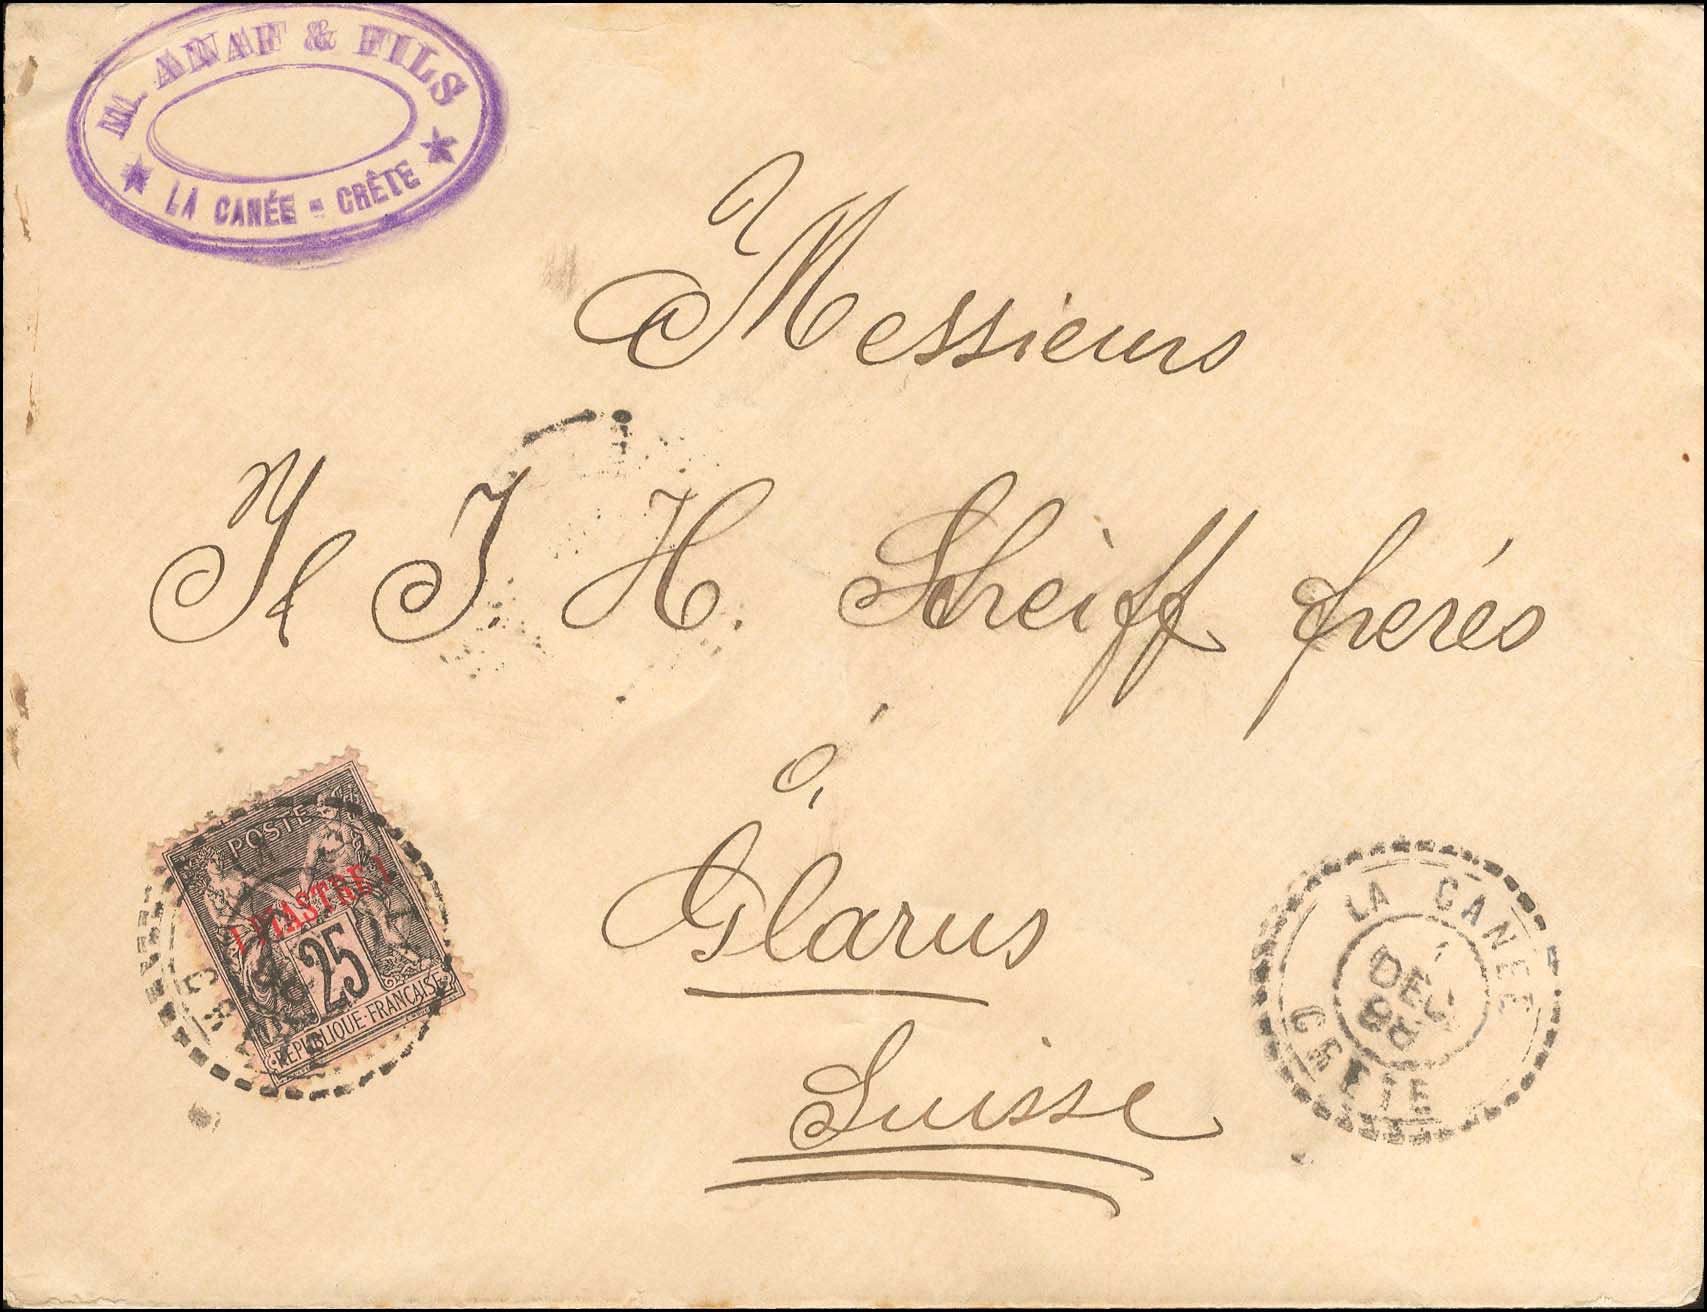 M. ANAF & FILS
LA CANÉE - CRÊTE
Messieurs
J. H. Scheiff frerés
à
Glarus
Suisse
POSTE
1 PIASTRE 1
25
REPUBLIQUE FRANÇAISE
LA CANEE
DEC
98
CRETE